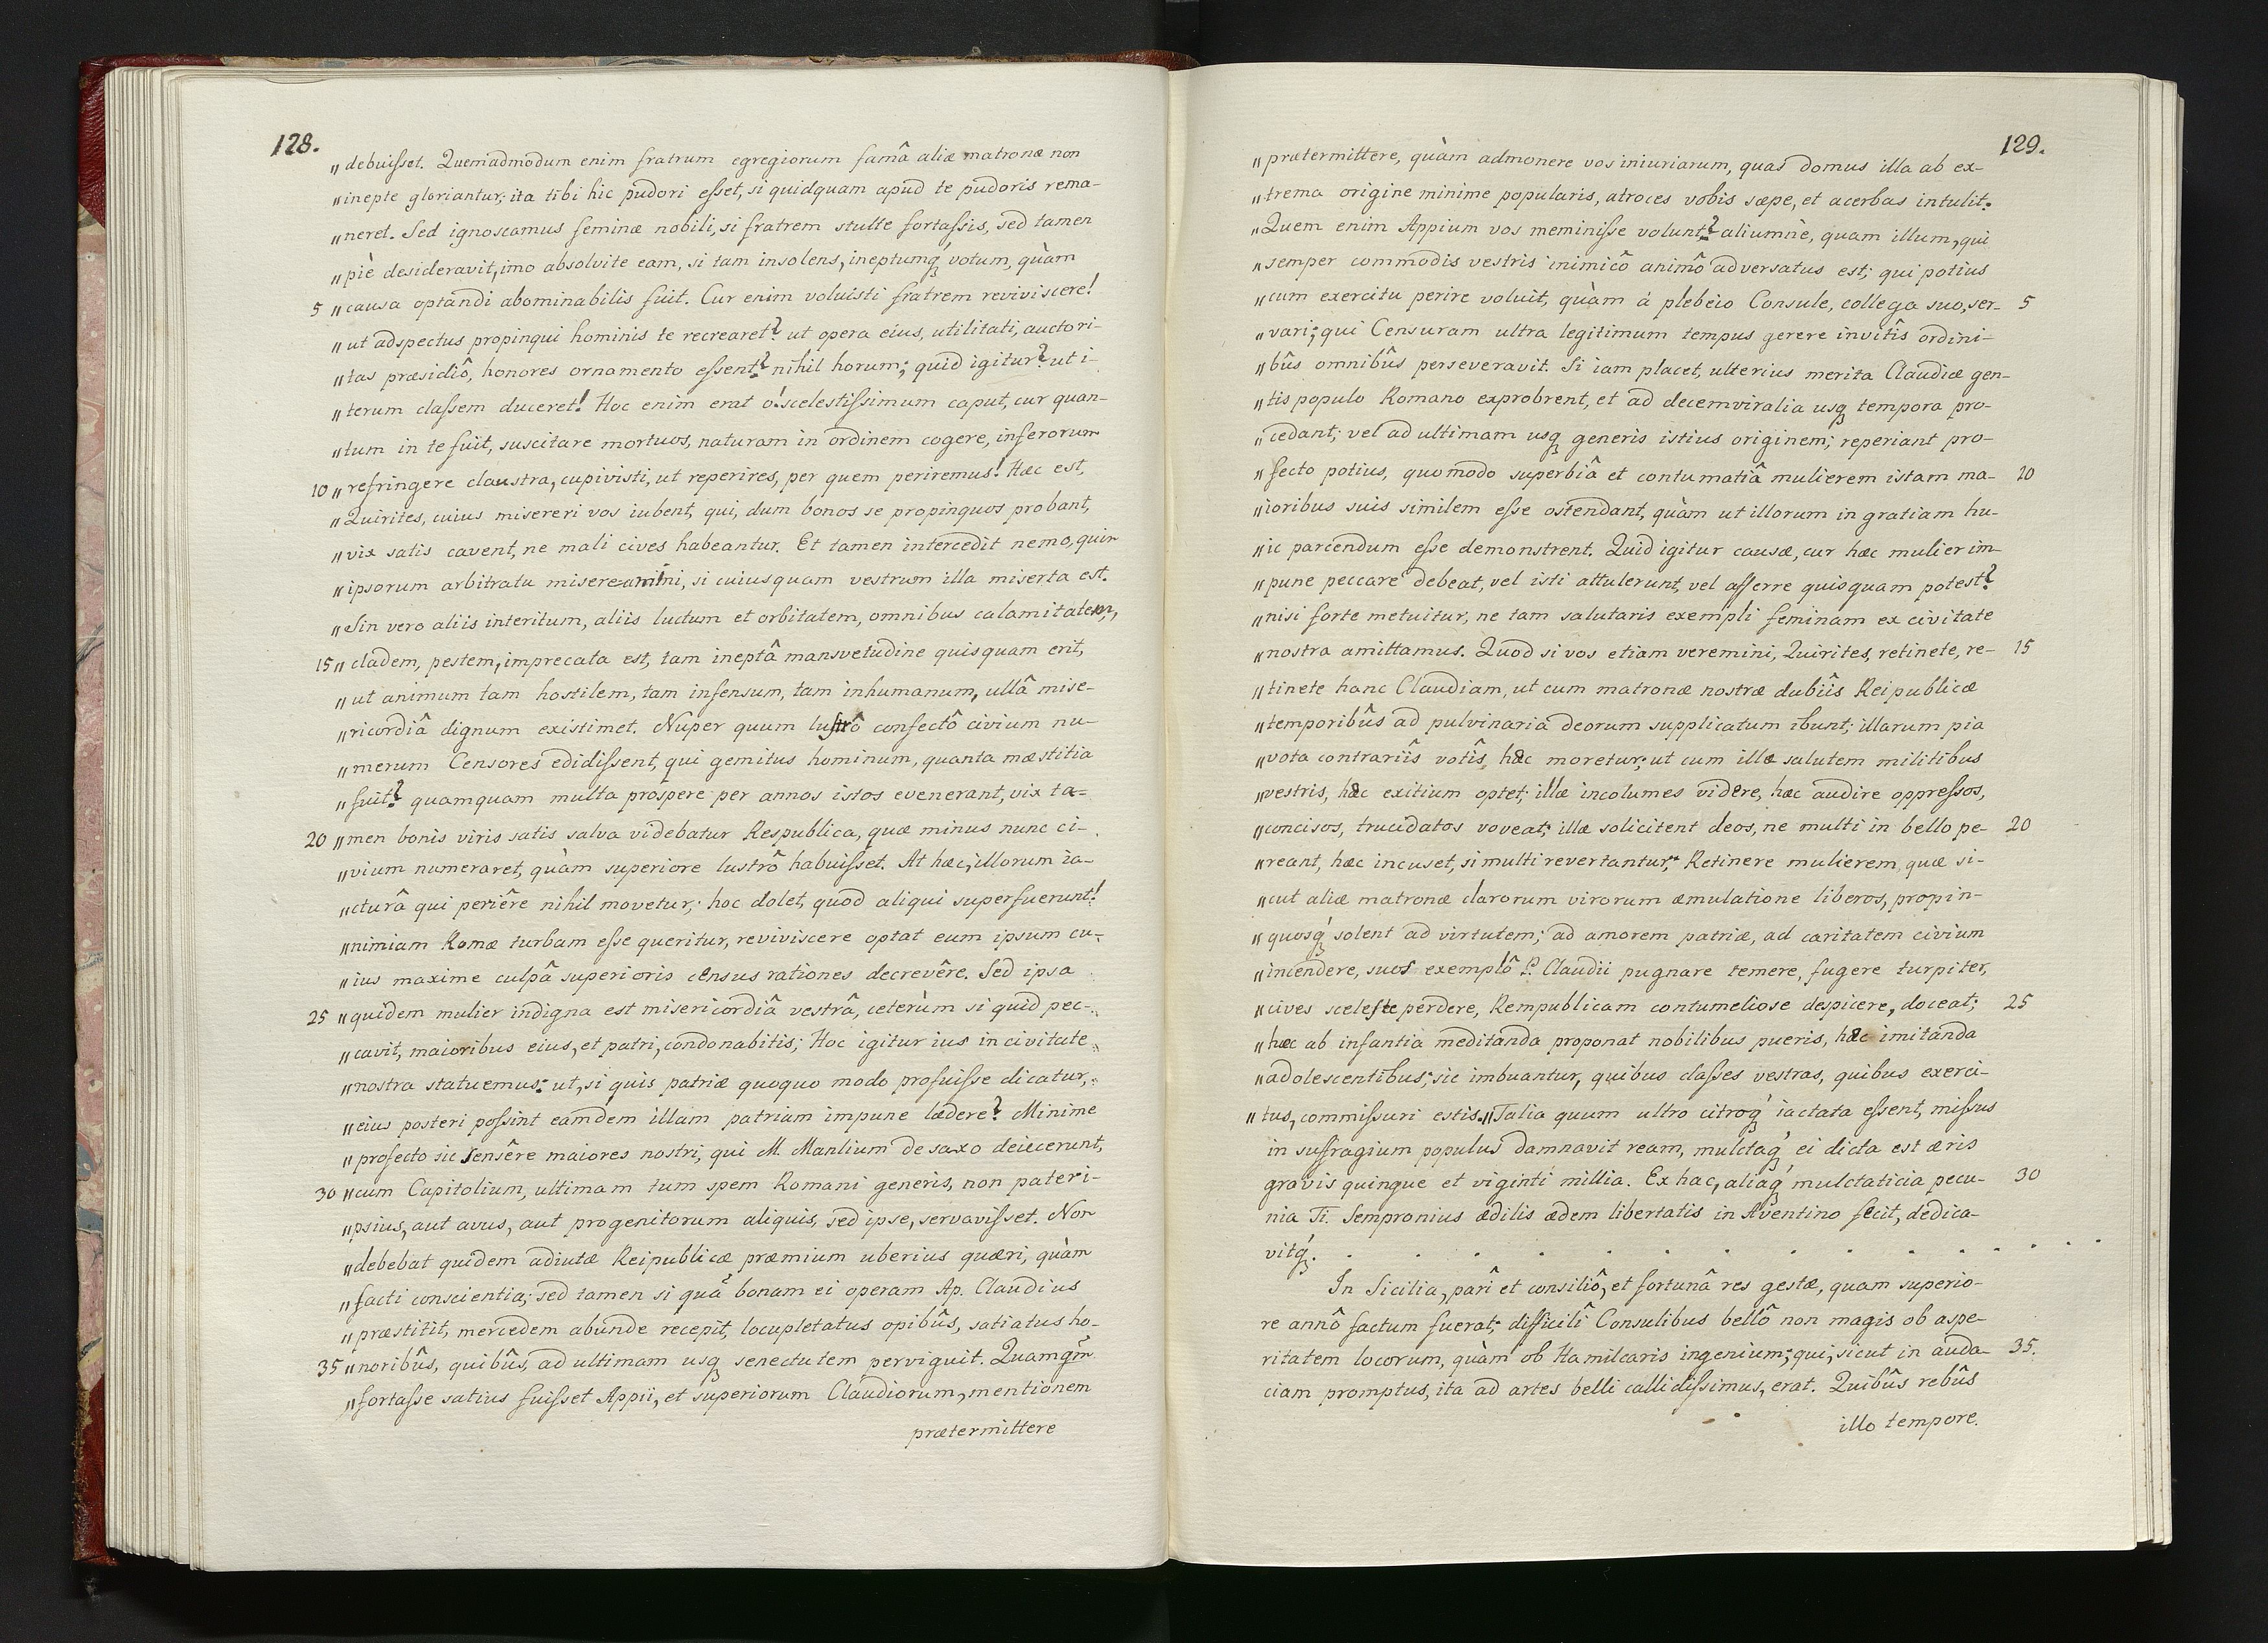 128.
„debuisset. Quemadmodum enim fratrum egregiorum famâ aliæ matronæ non
„inepte gloriantur; ita tibi hic pudori esset, si quidquam apud te pudoris rema-
„neret. Sed ignoscamus feminæ nobili, si fratrem stulte fortassis, sed tamen
„piè desideravit, imo absolvite eam, si tam insolens, ineptumq́ votum, quàm
5 „causa optandi abominabilis fuit. Cur enim voluisti fratrem reviviscere!
„ut adspectus propinqui hominis te recrearet? ut opera eius, utilitati, auctori-
„tas præsidiô, honores ornamento essent? nihil horum; quid igitur? ut i-
„terum classem duceret! Hoc enim erat ó! scelestissimum caput, cur quan-
„tum in te fuit, suscitare mortuos, naturam in ordinem cogere, inferorum
10 „refringere claustra, cupivisti, ut reperires, per quem periremus! Hæc est,
„Quirites, cuius misereri vos iubent, qui, dum bonos se propinquos probant,
„vix satis cavent, ne mali cives habeantur. Et tamen intercedit nemo, quin
„ipsorum arbitratu misereamini, si cuiusquam vestrum illa miserta est.
„Sin vero aliis interitum, aliis luctum et orbitatem, omnibus calamitatem,
15 „cladem, pestem, imprecata est, tam ineptâ mansvetudine quisquam erit,
„ut animum tam hostilem, tam infensum, tam inhumanum, ullâ mise-
„ricordiâ dignum existimet. Nuper quum lustrô confectô civium nu-
„merum Censores edidissent, qui gemitus hominum, quanta mæstitia
„fuit? quamquam multa prospere per annos istos evenerant, vix ta-
20 „men bonis viris satis salva videbatur Respublica, quæ minus nunc ci-
„vium numeraret, quàm superiore lustrô habuisset. At hæc, illorum ia-
„cturâ qui periêre nihil movetur; hoc dolet, quod aliqui superfuerunt!
„nimiam Romæ turbam esse queritur, reviviscere optat eum ipsum cu-
„ius maxime culpâ superioris census rationes decrevêre. Sed ipsa
25 „quidem mulier indigna est misericordiâ vestrâ, ceterùm si quid pec-
„cavit, maioribus eius, et patri, condonabitis; Hoc igitur ius in civitate
„nostra statuemus: ut, si quis patriæ quoquo modo profuisse dicatur,
„eius posteri possint eamdem illam patriam impune lædere? Minime
„profecto sic sensêre maiores nostri, qui M. Manlium de saxo deiecerunt,
30 „cum Capitolium, ultimam tum spem Romani generis, non pater i-
„psius, aut avus, aut progenitorum aliquis, sed ipse, servavisset. Non
„debebat quidem adiutæ Reipublicæ præmium uberius quæri, quàm
„facti conscientia; sed tamen si quâ bonam ei operam Ap. Claudius
„præstitit, mercedem abunde recepit, locupletatus opibûs, satiatus ho-
35 „noribûs, quibûs, ad ultimam usq́ senectutem perviguit. Quamq̃m
„fortasse satius fuisset Appii, et superiorum Claudiorum, mentionem
prætermittere
129.
„prætermittere, quàm admonere vos iniuriarum, quas domus illa ab ex-
„trema origine minime popularis, atroces vobis sæpe, et acerbas intulit.
„Quem enim Appium vos meminisse volunt? aliumnè, quam illum, qui
„semper commodis vestris inimicô animô adversatus est; qui potius
„cum exercitu perire voluit, quàm á plebeio Consule, collega suo, ser- 5
„vari; qui Censuram ultra legitimum tempus gerere invitîs ordini-
„bûs omnibûs perseveravit. Si iam placet, ulterius merita Claudiæ gen-
„tis populo Romano exprobrent, et ad decemviralia usq́ tempora pro-
„cedant; vel ad ultimam usq́ generis istius originem; reperiant pro-
„fecto potius, quomodo superbiâ et contumatiâ mulierem istam ma- 10
„ioribus suis similem esse ostendant, quàm ut illorum in gratiam hu-
„ic parcendum esse demonstrent. Quid igitur causæ, cur hæc mulier im-
„pune peccare debeat, vel isti attulerunt, vel afferre quisquam potest?
„nisi forte metuitur, ne tam salutaris exempli feminam ex civitate
„nostra amittamus. Quod si vos etiam veremini, Quirites, retinete, re- 15
„tinete hanc Claudiam, ut cum matronæ nostræ dubiîs Reipublicæ
„temporibûs ad pulvinaria deorum supplicatum ibunt; illarum pia
„vota contrariîs votîs, hæc moretur; ut cum illæ salutem militibus
„vestris, hæc exitium optet; illæ incolumes videre, hæc audire oppressos,
„concisos, trucidatos voveat; illæ solicitent deos, ne multi in bello pe- 20
„reant, hæc incuset, si multi revertantur. Retinere mulierem, quæ si-
„cut aliæ matronæ clarorum virorum æmulatione liberos, propin-
„quosq́ solent ad virtutem; ad amorem patriæ, ad caritatem civium
„incendere, suos exemplô P. Claudii pugnare temere, fugere turpiter,
„cives sceleste perdere, Rempublicam contumeliose despicere, doceat; 25
„hæc ab infantia meditanda proponat nobilibus pueris, hæc imitanda
„adolescentibus; sic imbuantur, quibus classes vestras, quibus exerci-
„tus, commissuri estis.„ Talia quum ultro citroq́ iactata essent, missus
in suffragium populus damnavit ream, mulctaq́ ei dicta est æris
gravis quinque et viginti millia. Ex hac, aliaq́ mulctaticia pecu- 30
nia Ti. Sempronius ædilis ædem libertatis in Aventino fecit, dedica-
vitq́. . . . . . . . . . . . . . .
In Sicilia, parî et consiliô, et fortunâ res gestæ, quam superio-
re annô factum fuerat; difficilî Consulibus bellô non magis ob aspe-
ritatem locorum, quàm ob Hamilcaris ingenium; qui, sicut in auda- 35.
ciam promptus, ita ad artes belli callidissimus, erat. Quibûs rebûs
illo tempore.